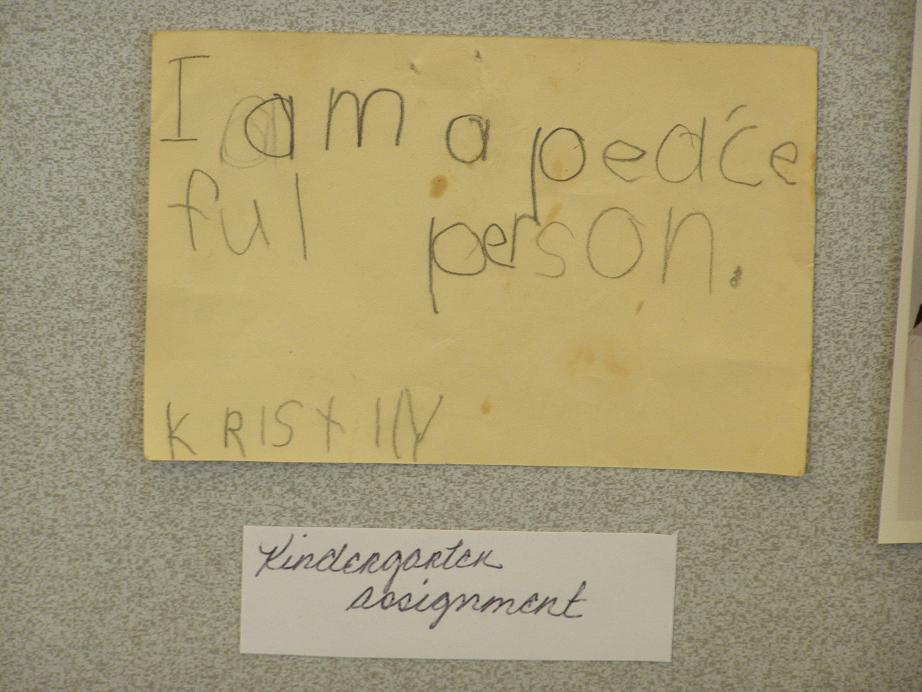 I am a peace
ful person.
KRISTIN
Kindergarten
assignment